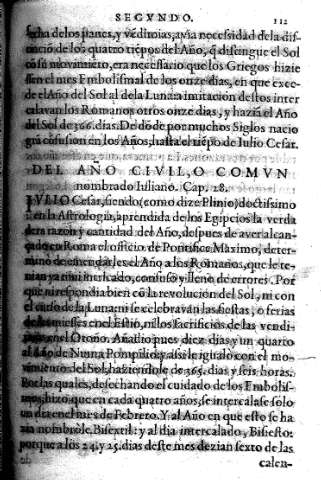 SEGVNDO. 112
fecha de los panes, y vẽdimias, avia necessidad de la dis-
tinciõ de los quatro tiẽpos del Año, q̃ distingue el Sol
cõ su movimiẽto, era necessario que los Griegos hizie
ssen el mes Embolismal de los onze dias, en que exce-
de el Año del Sol al de la Luna: a imitaciõ destos inter
calavan los Romanos otros onze dias, y haziã el Año
del Sol de 366. dias. De dõde por muchos Siglos nacio
grã cõfusion en los Años, hasta el tiẽpo de Iulio Cesar.
DEL AÑO CIVIL, O COMVN
nombrado Iuliano. Cap. 28.
IVLIO Cesar, siendo (como dize Plinio) doctissimo
en la Astrologia, aprendida de los Egipcios la verda
dera razon y cantidad del Año, despues de aver alcan-
çado en Roma el officio de Pontifice Maximo, deter-
minò de emendar, es el Año a los Romanos, que le te-
nian ya intricado, confuso y lleno de errores. Por
que ni respondia bien cõ la revolucion del Sol, ni con
el curso de la Luna: ni se celebravan las fiestas, o ferias
de las miesses en el Estio, ni los sacrificios de las vendi-
mias en el Otoño. Añadio pues diez dias, y un quarto
al Año de Numa Pompilio, y assi le igualò con el mo-
vimiento del Sol, haziendole de 365. dias y seis horas.
Por las quales, desechando el cuidado de los Embolis-
mos, hizo que en cada quatro años, se intercalasse solo
un dia en el mes de Febrero. Y al Año en que esto se ha
zia nombrole, Bisextil: y al dia intercalado, Bisiesto:
porque a los 24. y 25. dias deste mes dezian sexto de las
calen-